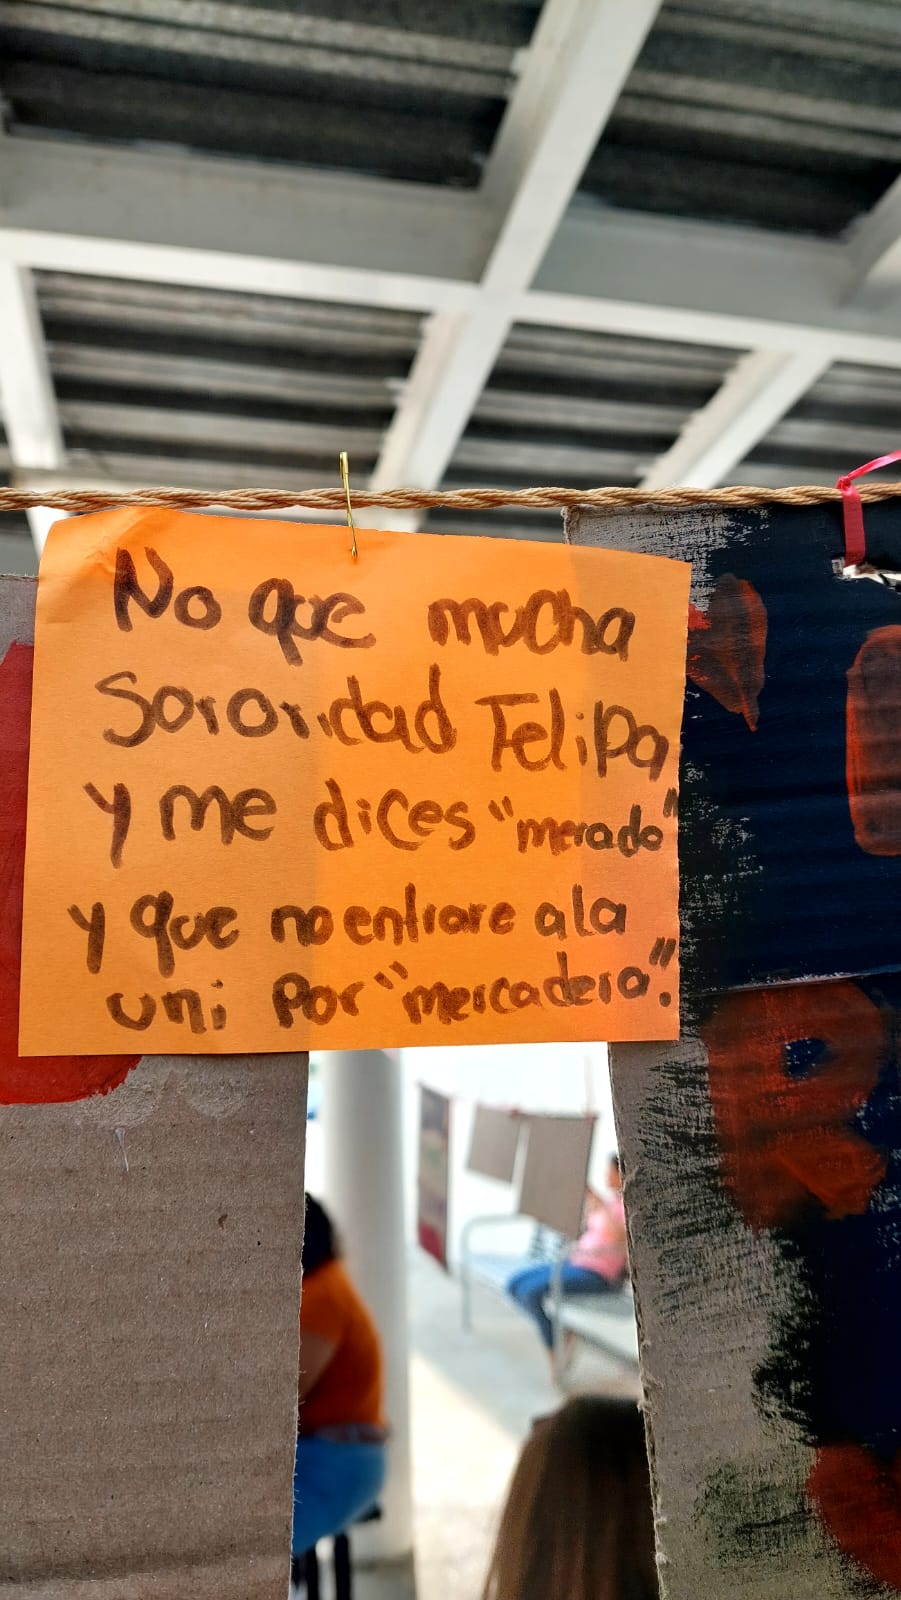 No que mucha
Sororidad Felipa
y me dices "merado"
y que no entrare a la
uni por "mercadera".
R